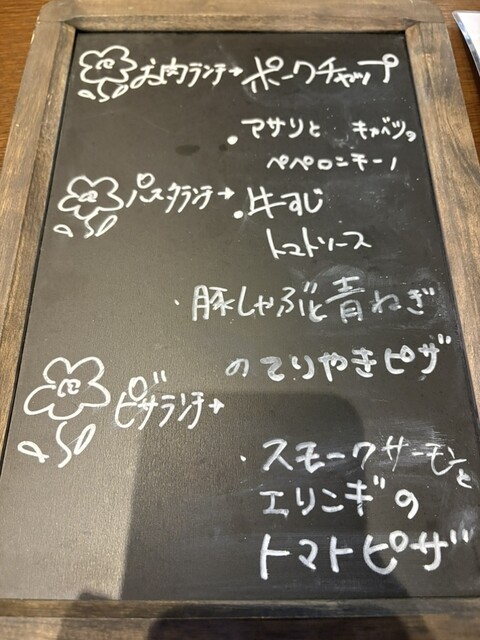 お肉ランチ→ポークチャップ
・アサリと キャベツの
ペペロンチーノ
パスタランチ→・牛すじ
トマトソース
・豚しゃぶと青ねぎ
のてりやきピザ
ピザランチ→
・スモークサーモンと
エリンギの
トマトピザ